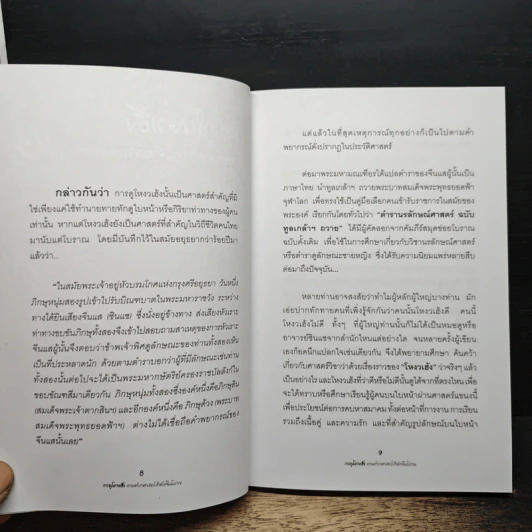 กล่าวกันว่า การดูโหงวเฮ้งนั้นเป็นศาสตร์สำคัญที่มิ
ใช่เพียงแค่ใช้ทำนายทายทักดูใบหน้าหรือกิริยาท่าทางของผู้คน
เท่านั้น หากแต่โหงวเฮ้งยังเป็นศาสตร์ที่สำคัญในวิถีชีวิตคนไทย
มานับแต่โบราณ โดยมีบันทึกไว้ในสมัยอยุธยากว่าร้อยปีมา
แล้วว่า...
"ในสมัยพระเจ้าอยู่หัวบรมโกศแห่งกรุงศรีอยุธยา วันหนึ่ง
ภิกษุหนุ่มสองรูปเข้าไปรับบิณฑบาตในพระมหาราชวัง ระหว่าง
ทางได้ยินเสียงจีนแส (ซินแซ) ซึ่งนั่งอยู่ข้างทาง ส่งเสียงหัวเราะ
ท่าทางชอบขันภิกษุทั้งสองจึงเข้าไปสอบถามสาเหตุของการหัวเราะ
จีนแสผู้นั้นจึงตอบว่าข้าพเจ้าพิศดูลักษณะของท่านทั้งสองเห็น
เป็นที่ประหลาดนัก ด้วยตามตำราบอกว่าผู้ที่มีลักษณะเช่นท่าน
ทั้งสองนั้นต่อไปจะได้เป็นพระมหากษัตริย์ครองราชบัลลังก์ใน
ขอบขัณฑสีมาเดียวกัน ภิกษุหนุ่มทั้งสองซึ่งองค์หนึ่งคือภิกษุสิน
(สมเด็จพระเจ้าตากสินฯ) และอีกองค์หนึ่งคือ ภิกษุด้วง (พระบาท
สมเด็จพระพุทธยอดฟ้าฯ) ต่างไม่ได้เชื่อถือคำพยากรณ์ของ
จีนแสนั้นเลย"
8
แต่แล้วในที่สุดเหตุการณ์ทุกอย่างก็เป็นไปตามคำ
พยากรณ์ดังปรากฏในประวัติศาสตร์
ต่อมาพระมหามณเฑียรได้แปลตำราของจีนแสผู้นั้นเป็น
ภาษาไทย นำทูลเกล้าฯ ถวายพระบาทสมเด็จพระพุทธยอดฟ้า
จุฬาโลก เพื่อทรงใช้เป็นคู่มือเลือกคนเข้ารับราชการในสมัยของ
พระองค์ เรียกกันโดยทั่วไปว่า "ตำรานรลักษณ์ศาสตร์ ฉบับ
ทูลเกล้าฯ ถวาย" ได้มีผู้คัดลอกจากคัมภีร์สมุดข่อยโบราณ
ฉบับดั้งเดิม เพื่อใช้ในการศึกษาเกี่ยวกับวิชานรลักษณ์ศาสตร์
หรือตำราดูลักษณะชายหญิง ซึ่งได้รับความนิยมแพร่หลายสืบ
ต่อมาถึงปัจจุบัน...
หลายท่านอาจสงสัยว่าทำไมผู้หลักผู้ใหญ่บางท่าน มัก
เอ่ยปากทักทายคนที่เพิ่งรู้จักกันว่าคนนี้โหงวเฮ้งดี คนนี้
โหงวเฮ้งไม่ดี ทั้งๆ ที่ผู้ใหญ่ท่านนั้นก็ไม่ได้เป็นหมอดูหรือ
อาจารย์ซินแซจากสำนักไหนแต่อย่างใด จนหลายครั้งผู้เขียน
เองก็อดนึกแปลกใจเช่นเดียวกัน จึงได้พยายามศึกษา ค้นคว้า
เกี่ยวกับศาสตร์วิชาว่าด้วยเรื่องราวของ "โหงวเฮ้ง" ว่าจริงๆ แล้ว
เป็นอย่างไร และโหงวเฮ้งที่ว่าดีหรือไม่ดีนั้นดูได้จากที่ตรงไหน เพื่อ
จะได้ทราบหรือศึกษาเรียนรู้ผู้คนบนใบหน้าผ่านศาสตร์แขนงนี้
เพื่อประโยชน์ต่อการคบหาสมาคม ทั้งต่อหน้าที่การงาน การเรียน
รวมถึงเนื้อคู่ และความรัก และที่สำคัญรูปลักษณ์บนใบหน้า
9